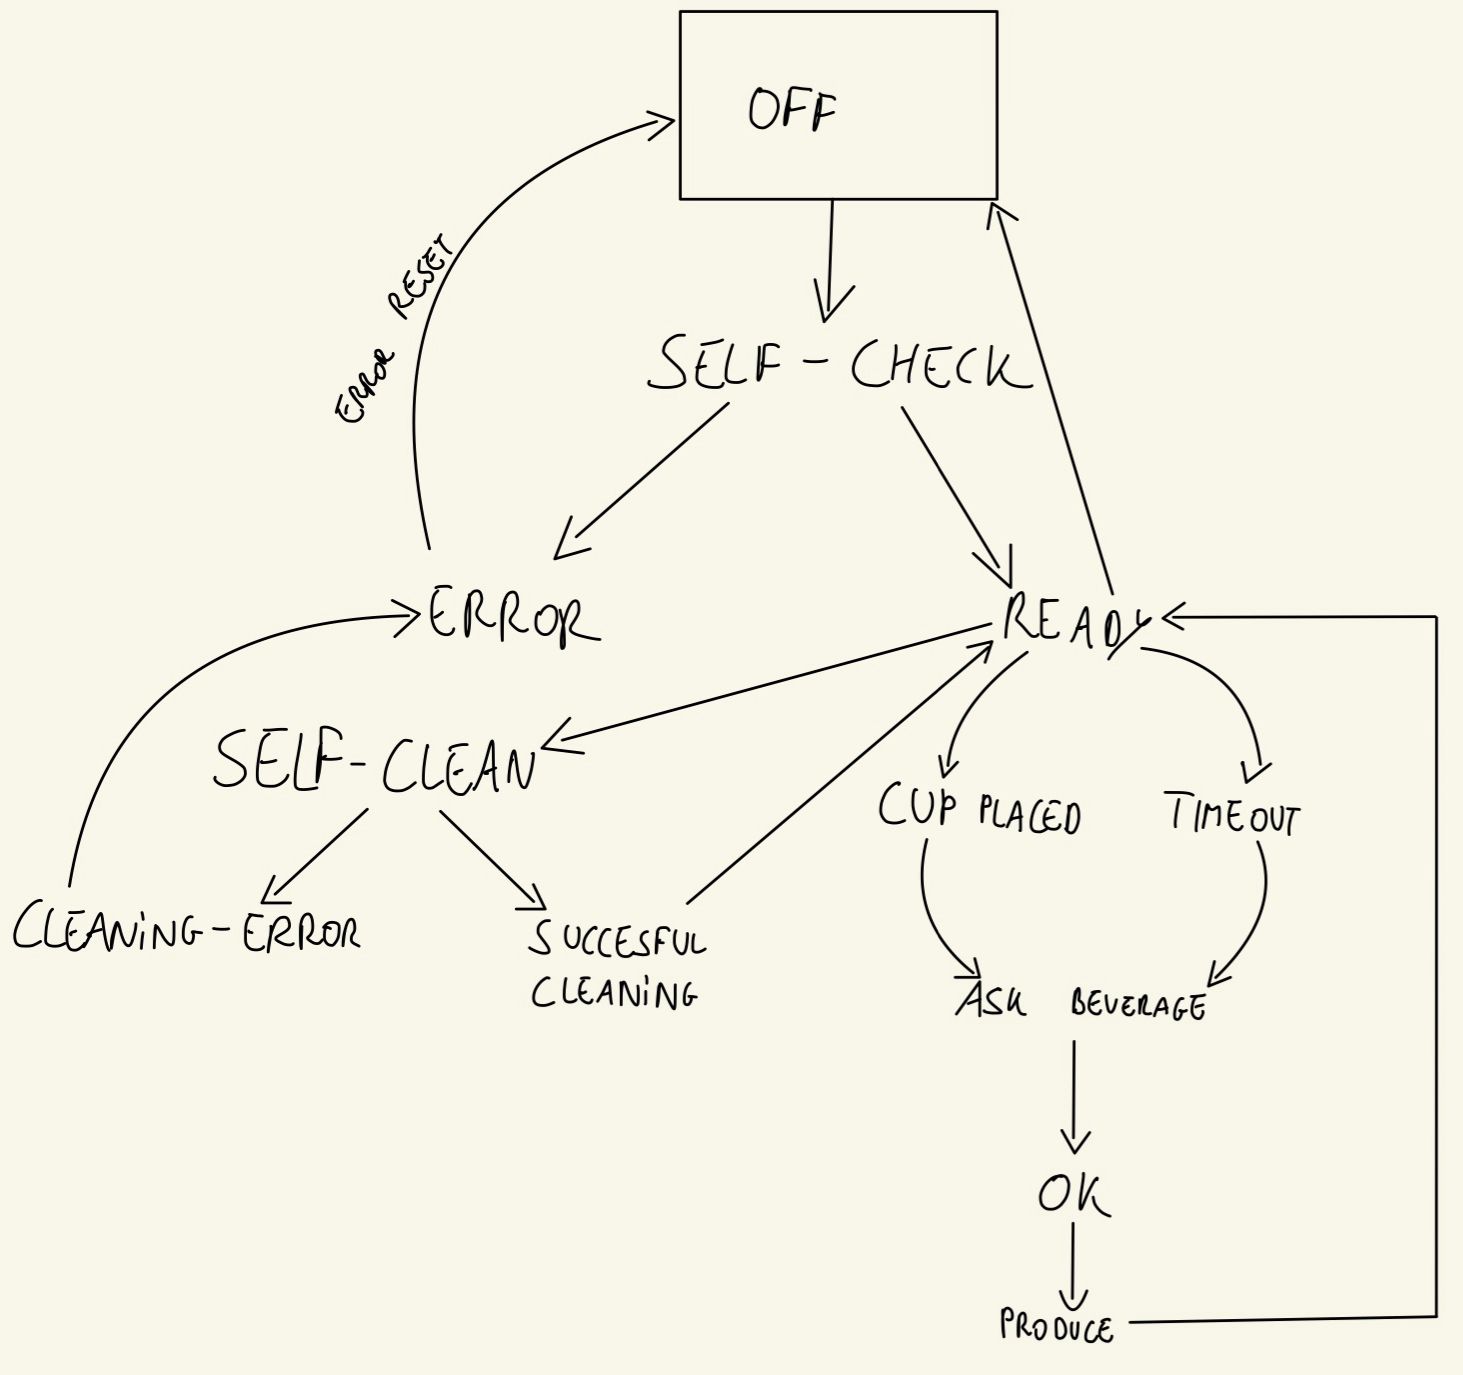 OFF
ERROR RESET
SELF - CHECK
ERROR
READY
SELF-CLEAN
CUP PLACED
TIMEOUT
CLEANING-ERROR
SUCCESFUL
CLEANING
ASK BEVERAGE
OK
PRODUCE